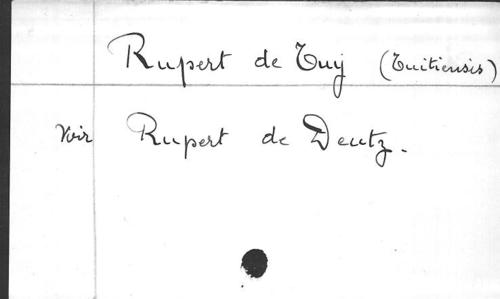 Rupert de Tuy (Tuitiensis)
Voir Rupert de Deutz.